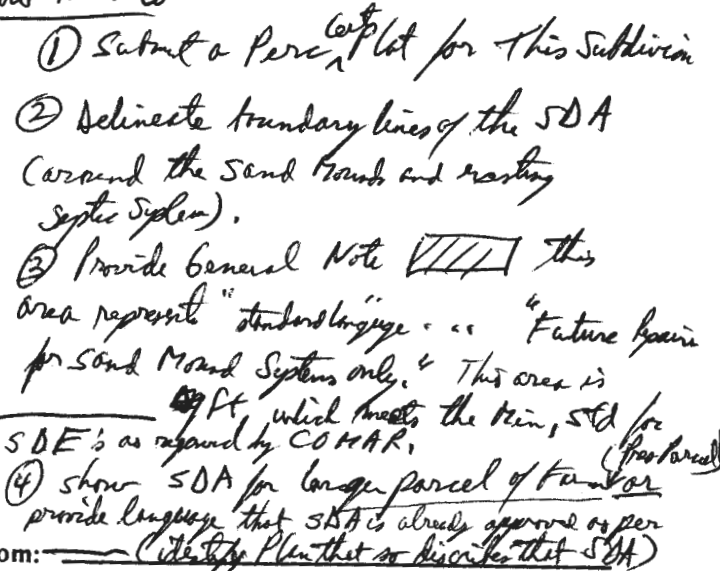 ① Submit a Perc Cert Plat for This Subdivision
② Delineate boundary lines of the SDA
(around the Sand Mounds and existing
Septic System).
③ Provide General Note this
area represents "standard language... "Future Repairs
for Sand Mound Systems only." This area is
sq ft, which meets the Min, Std for
SDE's as required by COMAR.
(Pres Parcel)
④ show SDA for larger parcel of Farm or
provide language that SDA is already approved as per
om: (identify Plan that so describes that SDA)